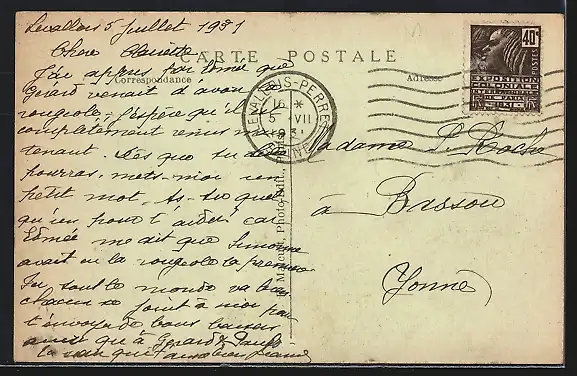 Levallois 5 juillet 1931
Chère
CARTE POSTALE
J'ai appris par Edmée que
Correspondance
Adresse
Gérard venait d'avoir la
rougeole, j'espère qu'il
complètement remis main
tenant. Dès que tu
pourras, mets-moi un
petit mot. As-tu quel
qu'un pour t'aider car
Edmée me dit que Simone
avait eu la rougeole la première
Ici tout le monde va bien
chacun se joint à moi pour
t'envoyer de bons baisers
ainsi qu'à Gérard &
LEVALLOIS-PERRET
16 *
5 VII
31
SEINE
40c
POSTES
EXPOSITION
COLONIALE
INTERNATIONALE
DE PARIS
1931
Madame
à
Bassou
Yonne